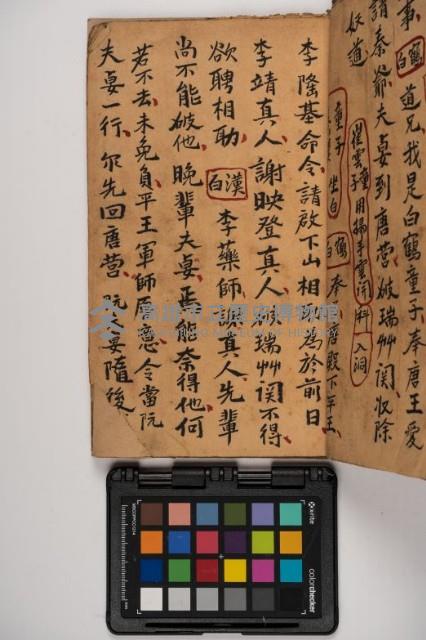 事
白鶴
道兄我是白鶴童子奉唐王愛
請秦爺夫妾到唐營破瑞艸関收除
妖道
童子
坐白
雲童用掃手 関科入洞
白鶴
奉唐殿下平王
李隆基命令請啟下山相 為於前日
李靖真人謝映登真人 瑞艸関不得
欲聘相助
漢白
李藥師 真人先輩
尚不能破他晚輩夫妾焉能奈得他何
若不去未免負平王軍師 意令當阮
夫妾一行尔先回唐營阮夫妾隨後
高雄市立歷史博物館